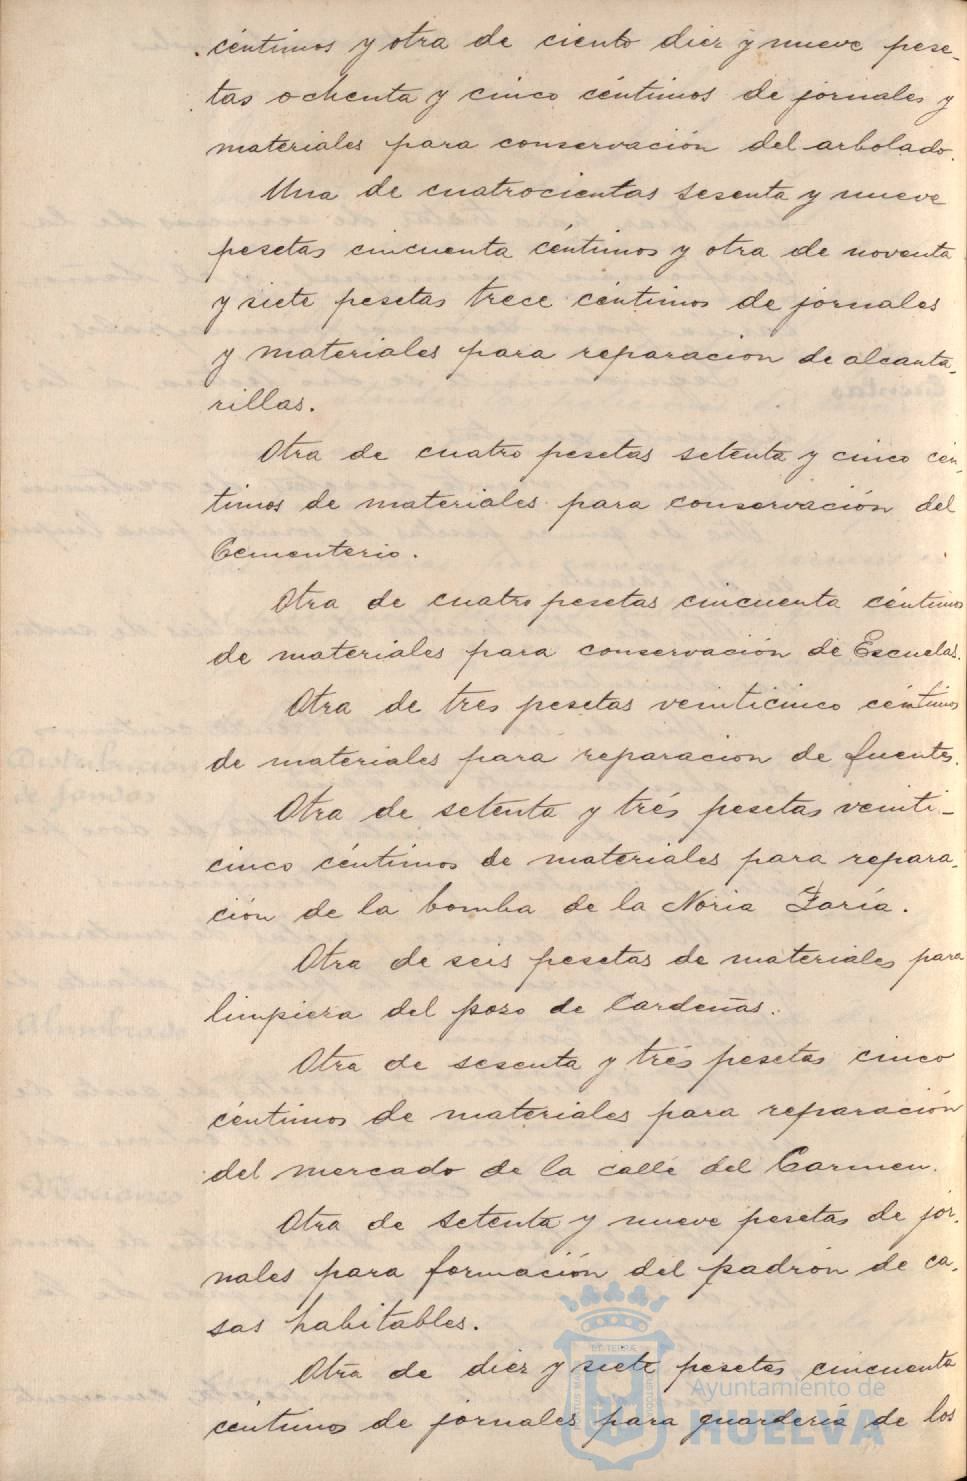 céntimos y otra de ciento diez y nueve pese-
tas ochenta y cinco céntimos de jornales y
materiales para conservación del arbolado.
Una de cuatrocientas sesenta y nueve
pesetas cincuenta céntimos y otra de noventa
y siete pesetas trece céntimos de jornales
y materiales para reparacion de alcanta-
rillas.
Otra de cuatro pesetas setenta y cinco cén-
timos de materiales para conservación del
Cementerio.
Otra de cuatro pesetas cincuenta céntimos
de materiales para conservación de Escuelas.
Otra de tres pesetas veinticinco céntimos
de materiales para reparacion de fuentes.
Otra de setenta y trés pesetas veinti-
cinco céntimos de materiales para repara-
ción de la bomba de la Noria Faría.
Otra de seis pesetas de materiales para
limpieza del pozo de Cardeñas.
Otra de sesenta y trés pesetas cinco
céntimos de materiales para reparación
del mercado de la calle del Carmen.
Otra de setenta y nueve pesetas de jor-
nales para formación del padrón de ca-
sas habitables.
Otra de diez y siete pesetas cincuenta
céntimos de jornales para guardería de los
Ayuntamiento de
HUELVA